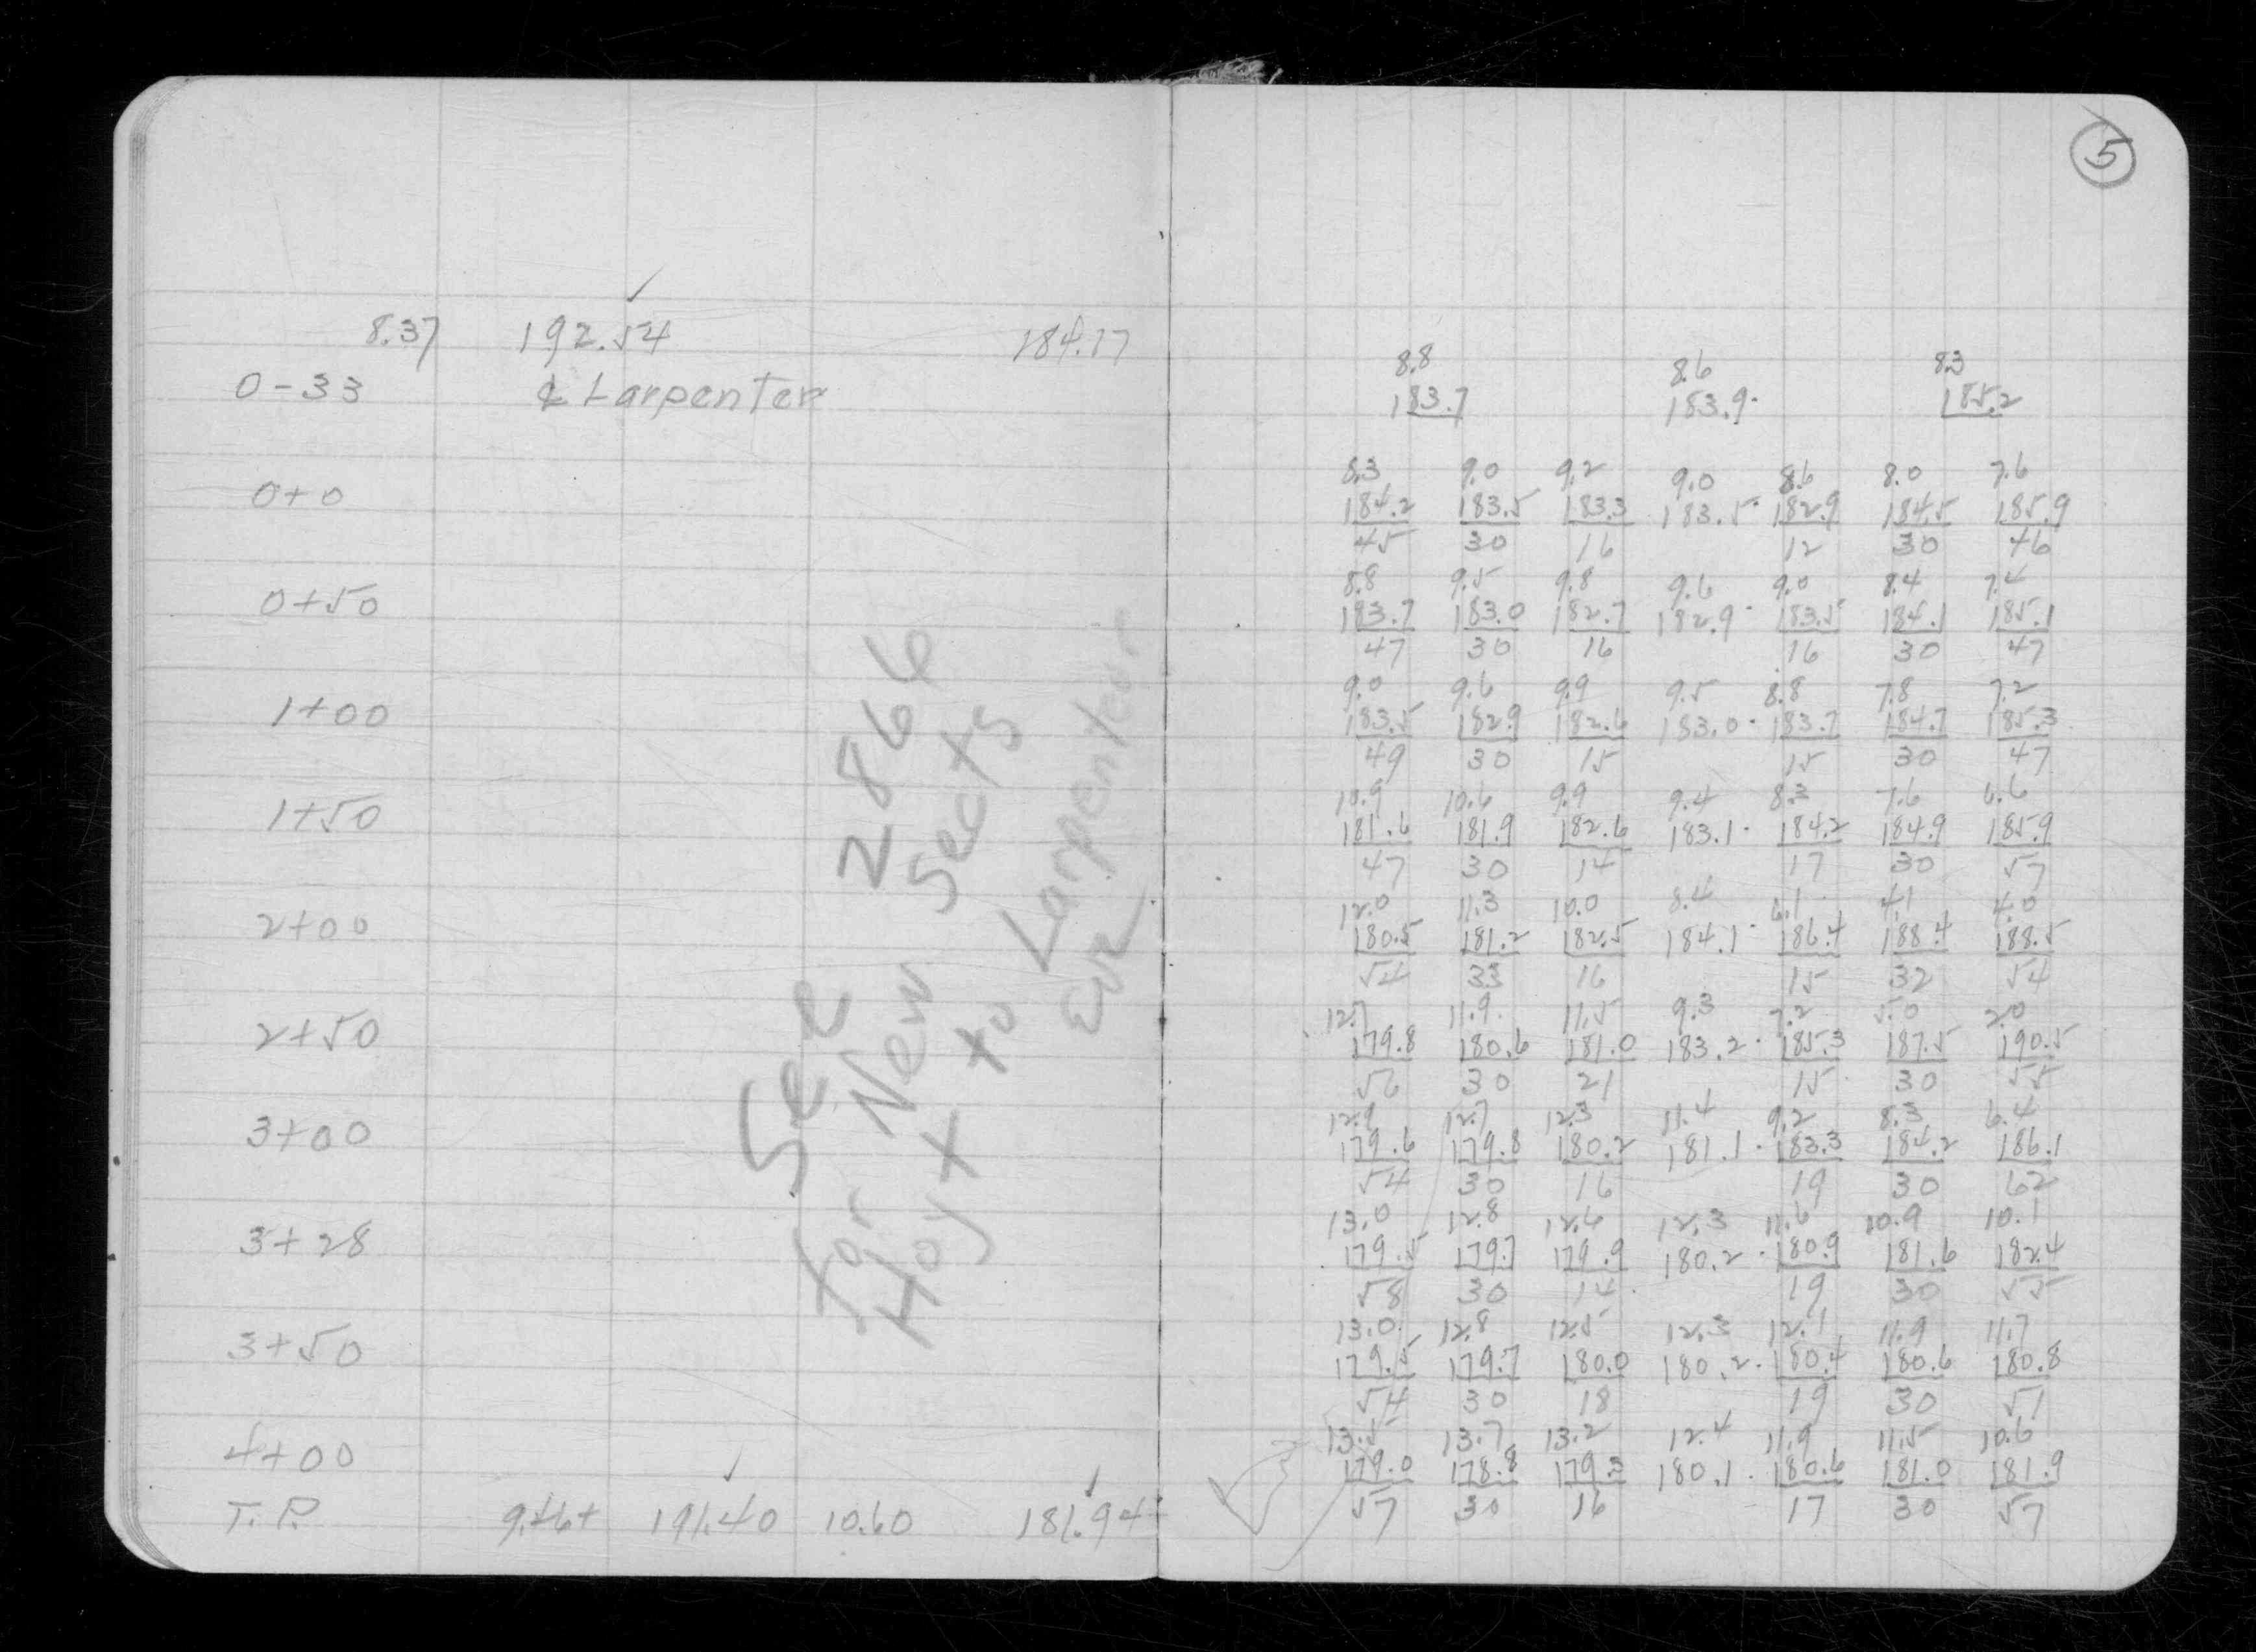 5
8.37 192.54 184.17
0-33 ℄ Larpenter
8.8 8.6 8.3
183.7 183.9 185.2
0+0
8.3 9.0 9.2 9.0 8.6 8.0 7.6
184.2 183.5 183.3 183.5 182.9 184.5 185.9
45 30 16 12 30 46
0+50
8.8 9.5 9.8 9.6 9.0 8.4 7.4
183.7 183.0 182.7 182.9 183.5 184.1 185.1
47 30 16 16 30 47
1+00
9.0 9.6 9.9 9.5 8.8 7.8 7.2
183.5 182.9 182.6 183.0 183.7 184.7 185.3
49 30 15 15 30 47
1+50
10.9 10.6 9.9 9.4 8.3 7.6 6.6
181.6 181.9 182.6 183.1 184.2 184.9 185.9
47 30 14 17 30 57
2+00
12.0 11.3 10.0 8.4 6.1 4.1 4.0
180.5 181.2 182.5 184.1 186.4 188.4 188.5
54 33 16 15 32 54
2+50
12.7 11.9 11.5 9.3 7.2 5.0 2.0
179.8 180.6 181.0 183.2 185.3 187.5 190.5
56 30 21 15 30 55
3+00
12.9 12.7 12.3 11.4 9.2 8.3 6.4
179.6 179.8 180.2 181.1 183.3 184.2 186.1
54 30 16 19 30 62
3+28
13.0 12.8 12.6 12.3 11.6 10.9 10.1
179.5 179.7 179.9 180.2 180.9 181.6 182.4
58 30 14 19 30 55
3+50
13.0 12.8 12.5 12.3 12.1 11.9 11.7
179.5 179.7 180.0 180.2 180.4 180.6 180.8
54 30 18 19 30 51
4+00
13.5 13.7 13.2 12.4 11.9 11.5 10.6
179.0 178.8 179.3 180.1 180.6 181.0 181.9
57 30 16 17 30 57
T.P. 9.46+ 191.40 10.60 181.94+
See 2866
for New Sects
Hoyt to Larpenteur